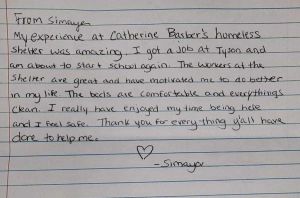 From Simaya
My experience at Catherine Basber's homeless
shelter was amazing. I got a job at Tyson and
am about to start school again. The workers at the
shelter are great and have motivated me to do better
in my life. The beds are comfortable and everythings
clean. I really have enjoyed my time being here
and I feel safe. Thank you for everything y'all have
done to help me.
♡
-Simaya